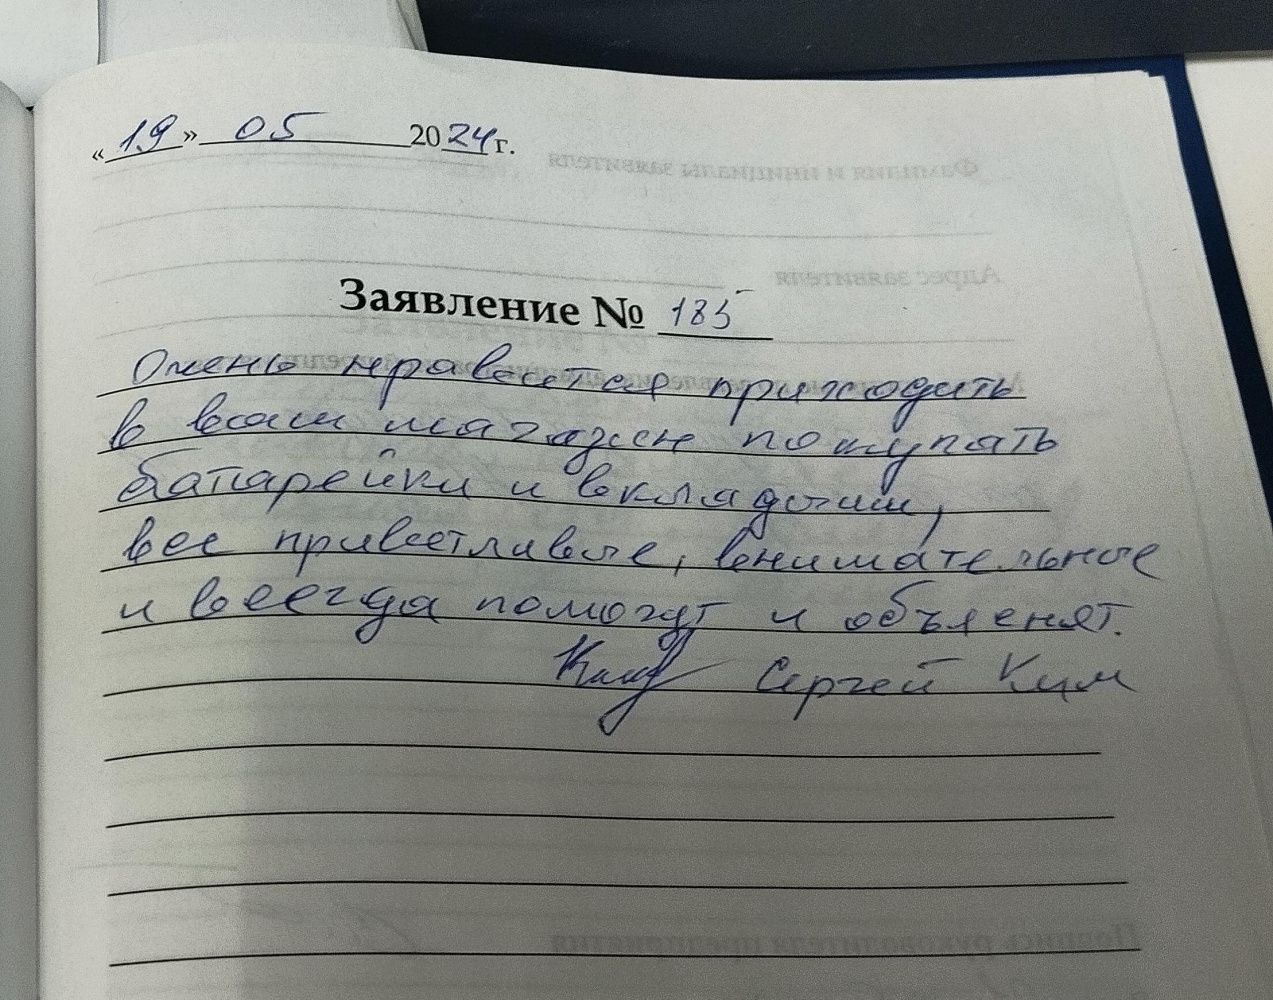 «19» 05 2024 г.
Заявление № 185
Очень нравится приходить
в ваш магазин покупать
батарейки и вкладыши,
все приветливые, внимательные
и всегда помогут и объяснят.
Сергей Ким